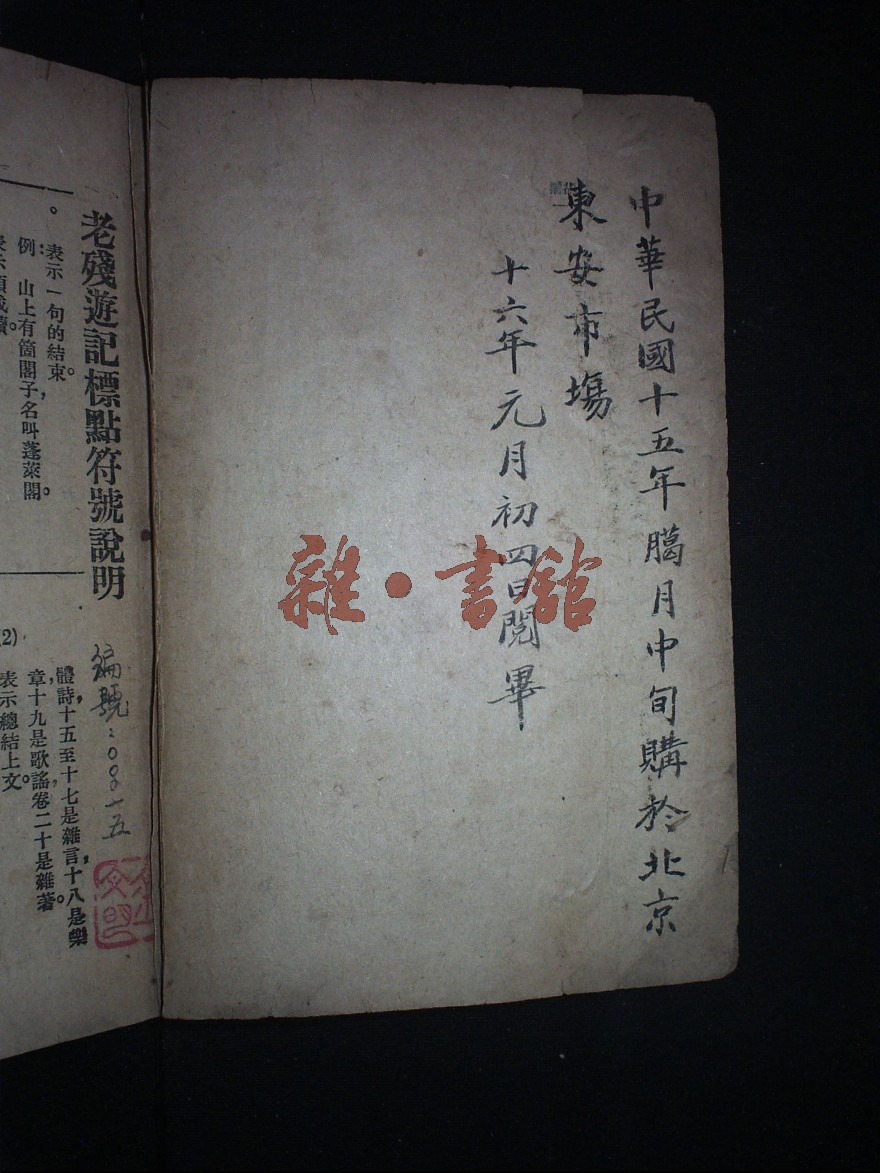 中華民國十五年臈月中旬購於北京
東安市場
十六年元月初四日閱畢
雜·書館
老殘遊記標點符號說明
。表示一句的結束。
例：山上有箇閣子，名叫蓬萊閣。
(2)
體詩，十五至十七是雜言，十八是樂
章，十九是歌謠，卷二十是雜著。
表示總結上文。
編號：